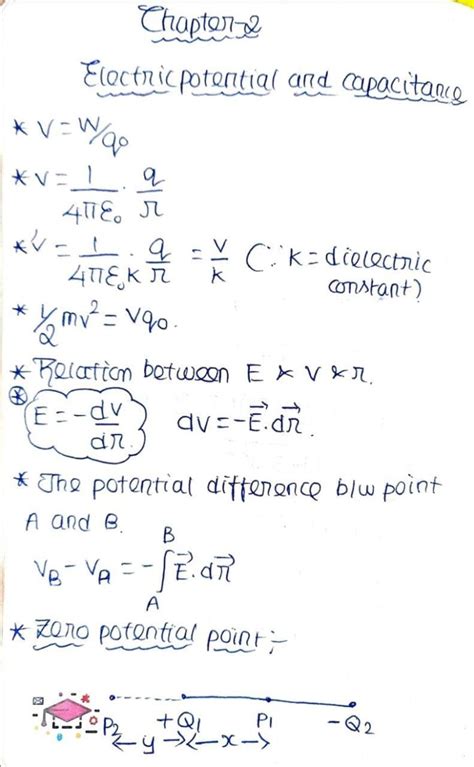 Chapter-2
Electric potential and capacitance
* V = W/q₀
* V = 1/4πε₀ · q/r
* V' = 1/4πε₀K · q/r = V/K (∵ K = dielectric constant)
* 1/2 mv² = Vq₀.
* Relation between E & V & r.
⊛ E = -dv/dr. dv = -E⃗.dr⃗.
* The potential difference b/w point
A and B.
V_B - V_A = -∫_A^B E⃗.dr⃗
* Zero potential point;-
P₂ +Q₁ P₁ -Q₂
←y→←x→